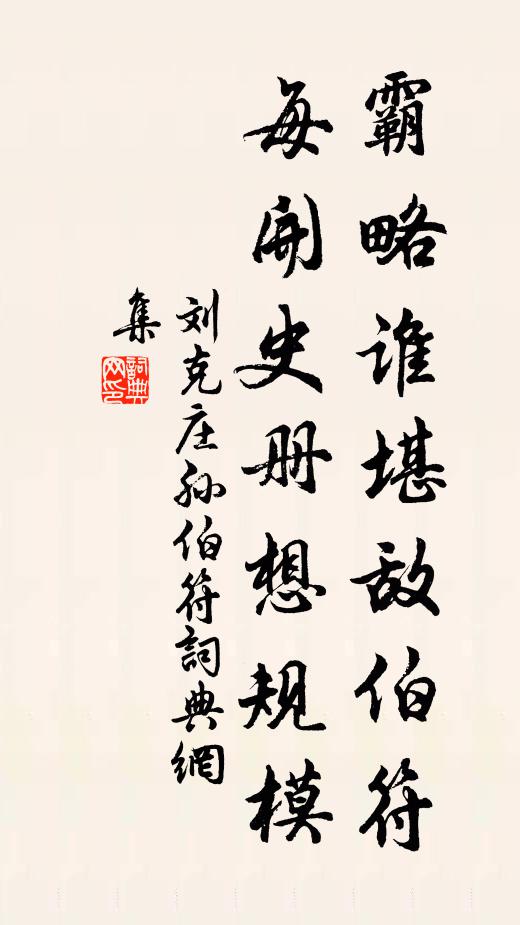 霸略谁堪敌伯符
每開史册想规模
刘克庄孙伯符詞典網
集
詞典
网印